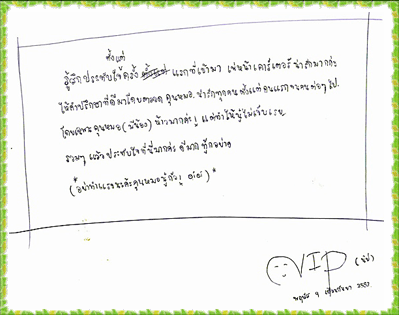 ตั้งแต่
รู้สึกประทับใจตั้ง แรกที่เข้ามา เพ่หน้าเคาร์เตอร์ น่ารักมากค่ะ
ให้คำปรึกษาที่ดีมาโดยตลอด คุณหมอ น่ารักทุกคน ตั้งแต่คนแรกจนคนต่อๆ ไป.
โดยเฉพาะคุณหมอ (มีน้อง) น้าวมากค่ะ แต่ทำให้หนูไม่เจ็บเลย
รวมๆ แล้วประทับใจที่นี่มากค่ะ ดีมากทุกอย่าง
(*อย่าทำแรงนะคะคุณหมอหนูกลัว ๆ อิอิ)*
VIP
พฤหัส 9 เมษายน 2552